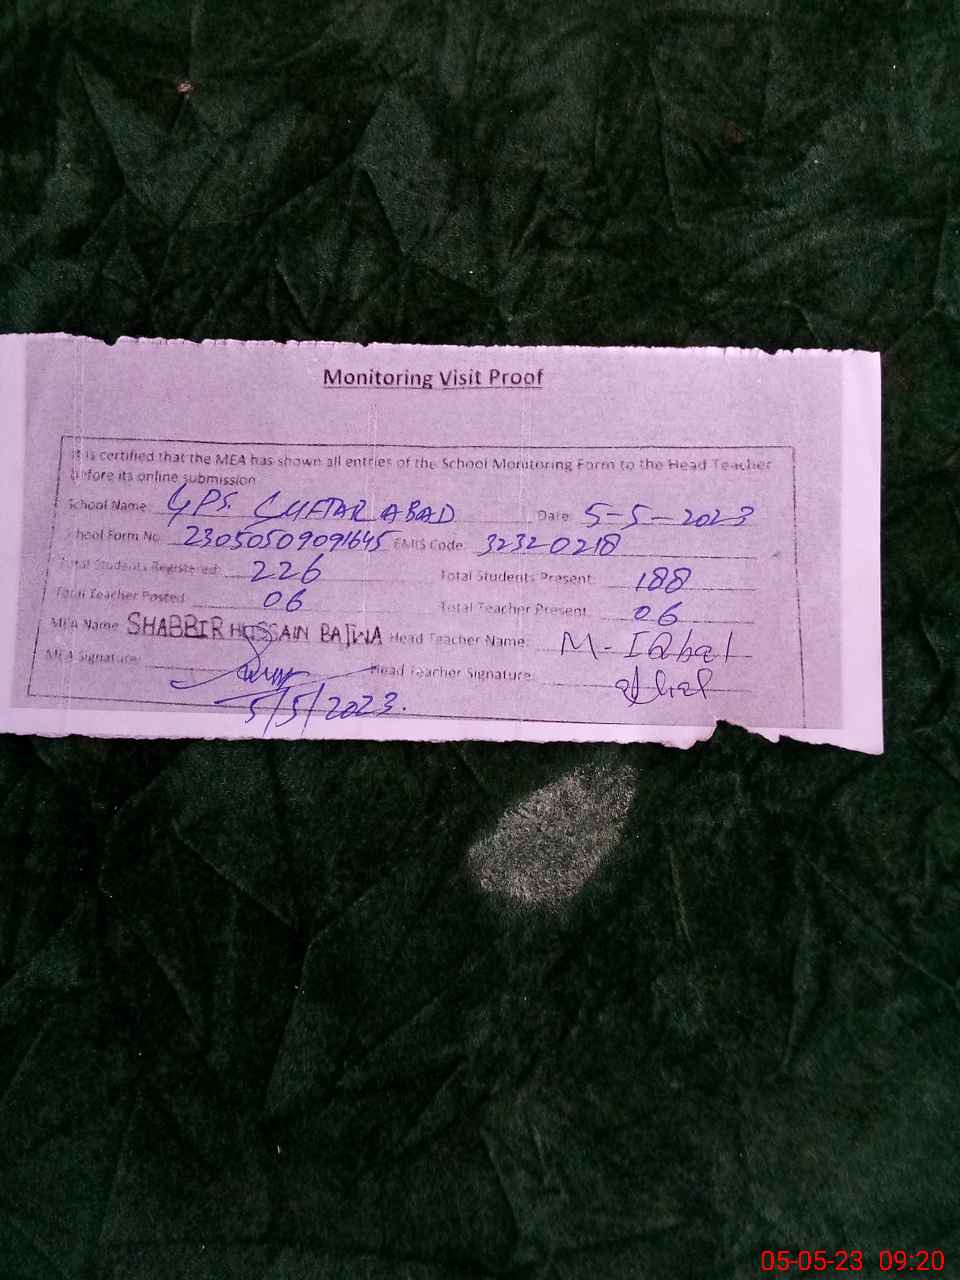 Monitoring Visit Proof
It is certified that the MEA has shown all entries of the School Monitoring Form to the Head Teacher
before its online submission
School Name GPS. GUFTAR ABAD Date: 5-5-2023
School Form No. 23050509091645 EMIS Code: 32320218
Total Students Registered: 226 Total Students Present: 188
Total Teacher Posted 06 Total Teacher Present: 06
MEA Name: SHABBIR HUSSAIN BAJWA Head Teacher Name: M-Iqbal
MEA Signature: Head Teacher Signature:
5/5/2023.
05-05-23 09:20